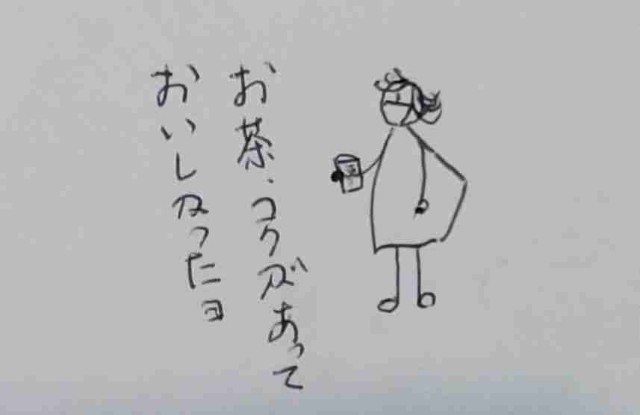 お茶、コクがあって
おいしかったヨ